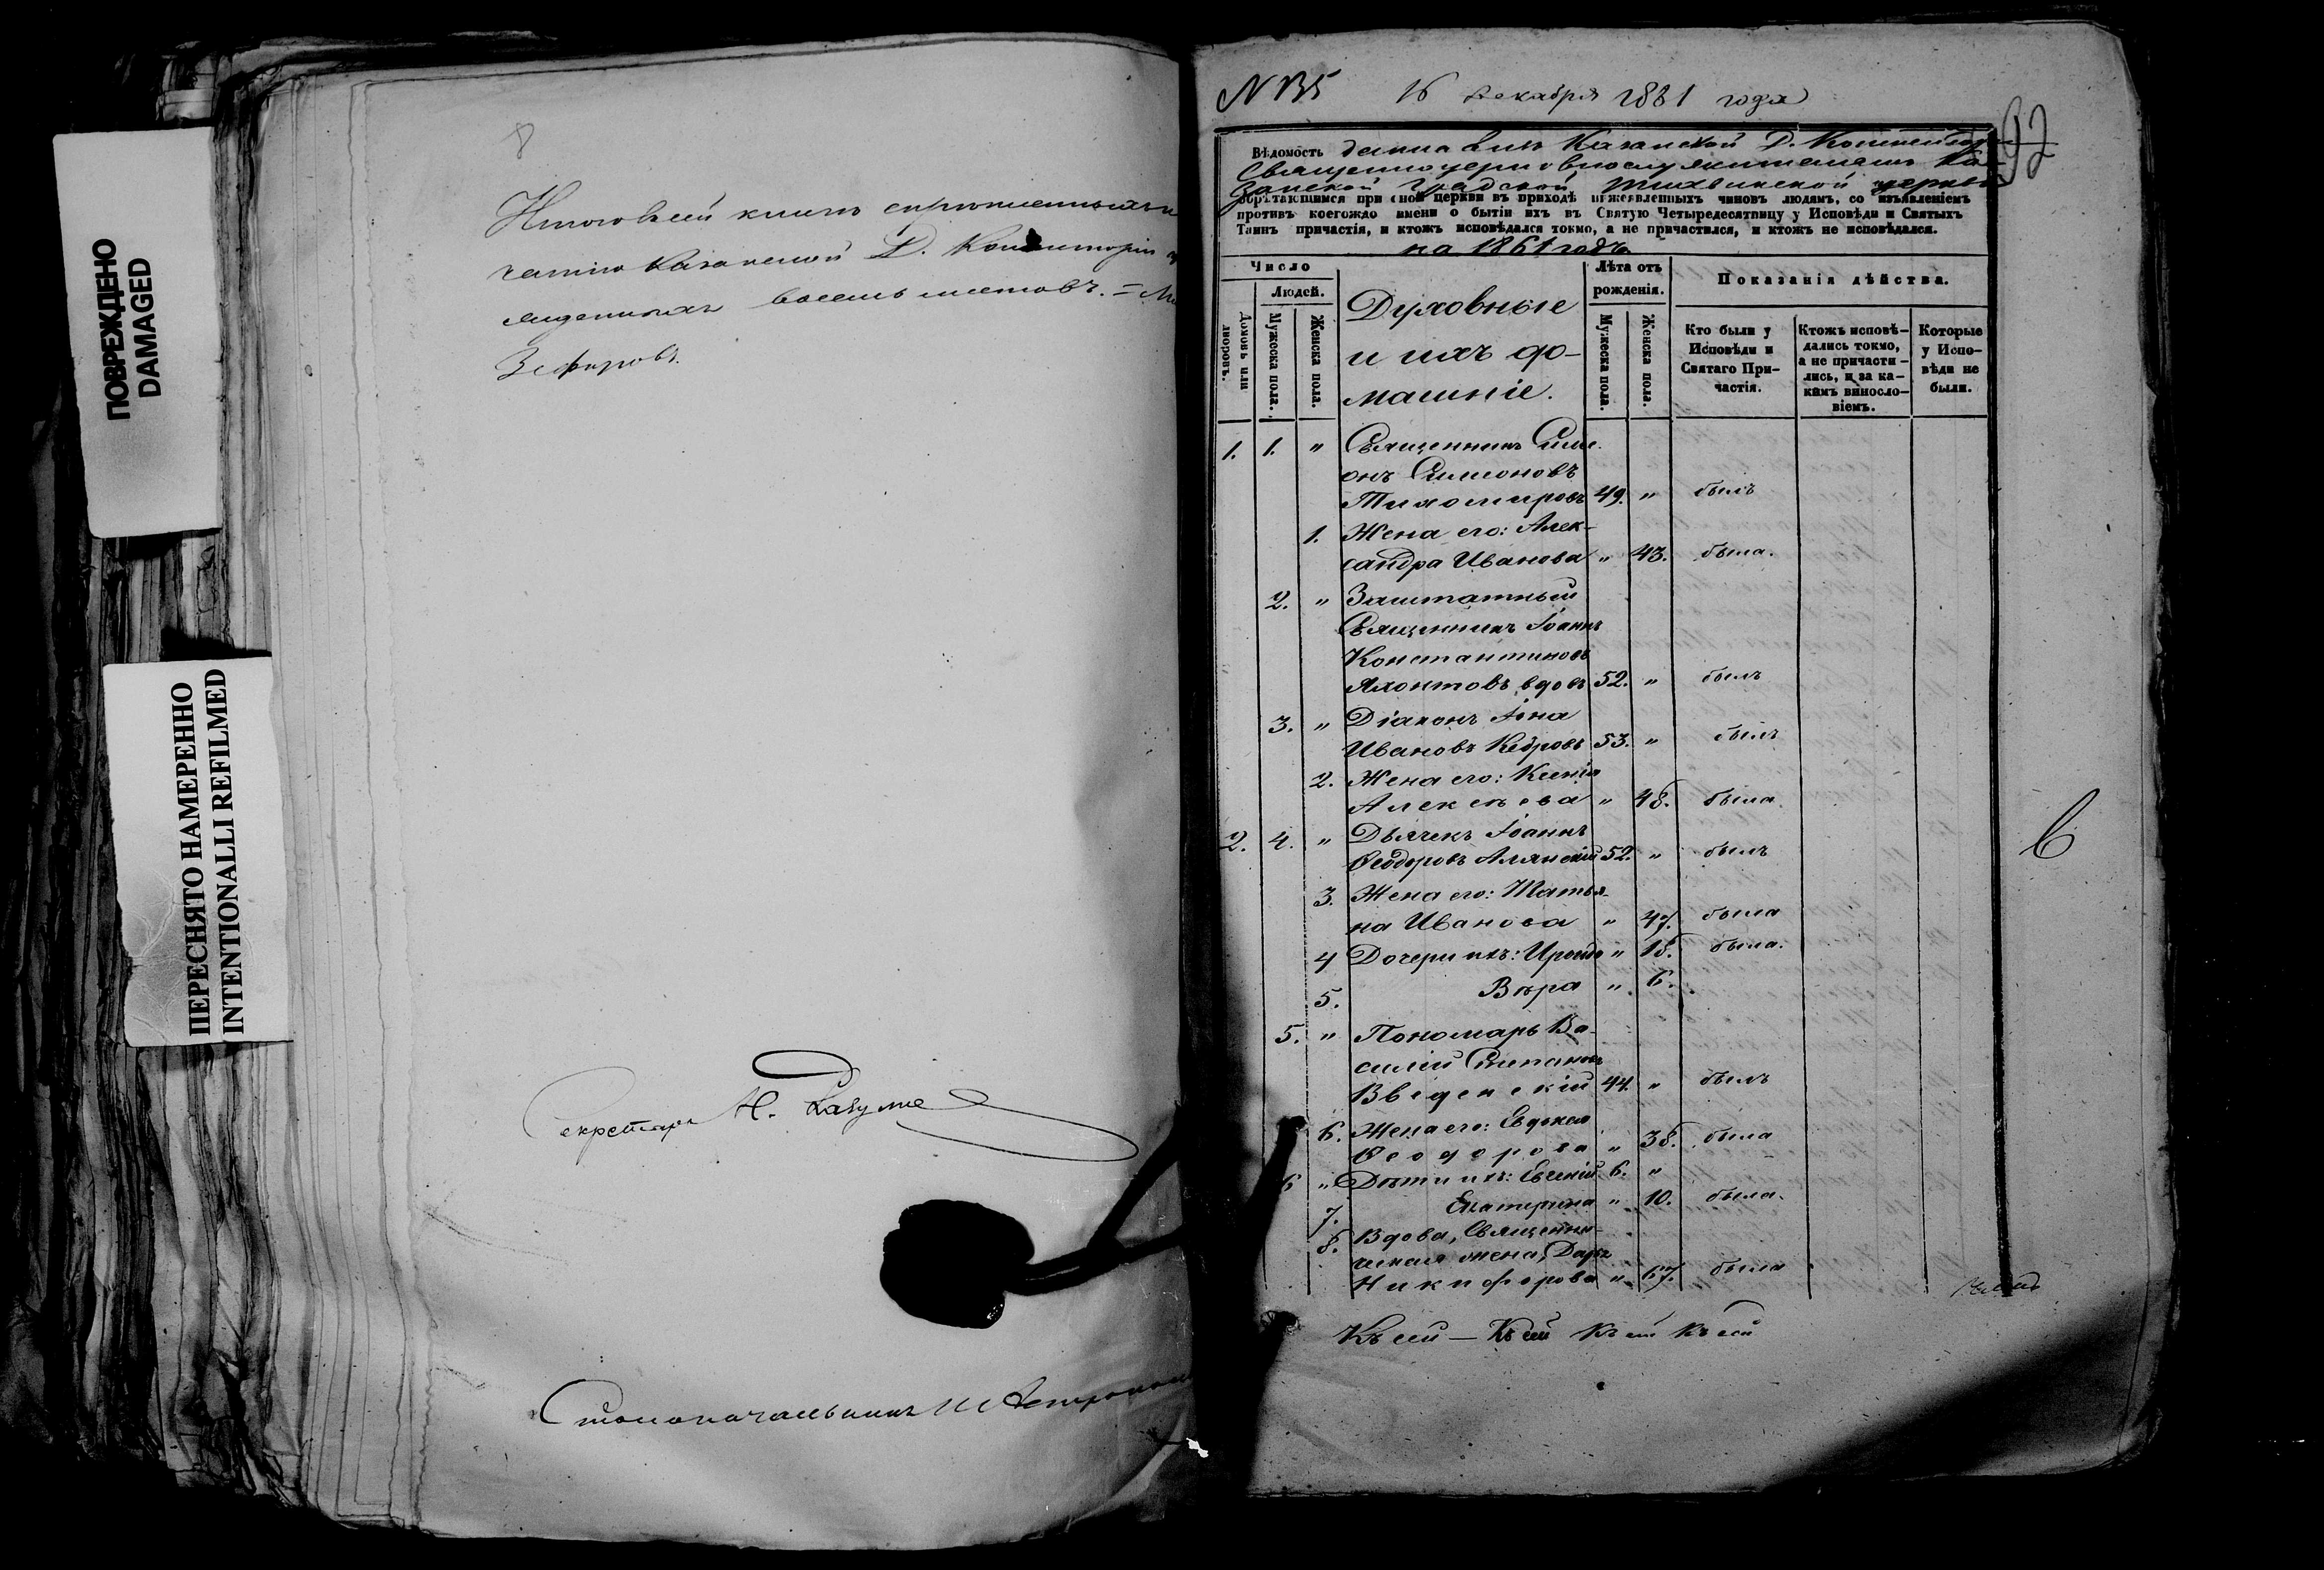 ПОВРЕЖДЕНО
DAMAGED
ПЕРЕСНЯТО НАМЕРЕННО
INTENTIONALLI REFILMED
8
Итого въ сей книгѣ
Казанской Д. Консисторіи
восемь листовъ. =
Зефировъ.
Секретарь Н. Разумо
Столоначальникъ
N 135 16 декабря 1861 года
92
Вѣдомость данная изъ Казанской Д. Консисторіи
Священноцерковнослужителемъ Ка-
занской Градской Тихвинской церкви
обрѣтающимся при оной церкви въ приходѣ нижеявленныхъ чиновъ людямъ, со изъявленіемъ
противъ коегождо имени о бытіи ихъ въ Святую Четыредесятницу у Исповѣди и Святыхъ
Таинъ причастія, и ктожъ исповѣдался токмо, а не причастился, и ктожъ не исповѣдался.
на 1861 годъ
Число
Людей.
Домовъ или дворовъ.
Мужеска пола.
Женска пола.
Духовные
и ихъ до-
машніе.
Лѣта отъ
рожденія.
Мужеска пола.
Женска пола.
Показанія дѣйства.
Кто были у
Исповѣди и
Святаго При-
частія.
Ктожъ исповѣ-
дались токмо,
а не причасти-
лись, и за ка-
кимъ винosло-
віемъ.
Которые
у Испо-
вѣди не
были.
1. 1. " Священникъ Симе-
онъ Симоновъ
Тихомировъ 49. " былъ
1. Жена его: Алек-
сандра Иванова " 43. была.
2. " Заштатный
Священникъ Іоаннъ
Константиновъ
Яхонтовъ вдовъ 52. " былъ
3. " Діаконъ Іона
Ивановъ Кедровъ 53. " былъ
2. Жена его: Ксенія
Алексѣева " 48. была.
2. 4. " Дьячекъ Іоаннъ
Ѳеодоровъ Алянскій 52. " былъ
3. Жена его: Татья-
на Иванова " 47. была
4 Дочери ихъ: Ироида " 18. была.
5. Вѣра " 6.
5. " Пономарь Ва-
силій Степановъ
Введенскій 44. " былъ
6. Жена его: Евдокія
Ѳеодорова " 38. была
6 " Дѣти ихъ: Евгеній 6. "
7. Екатерина " 10. была.
8. Вдова, Священни-
ческая жена, Дарья
Никифорова " 67. была
Къ сей — Къ сей Къ сей Къ сей
6